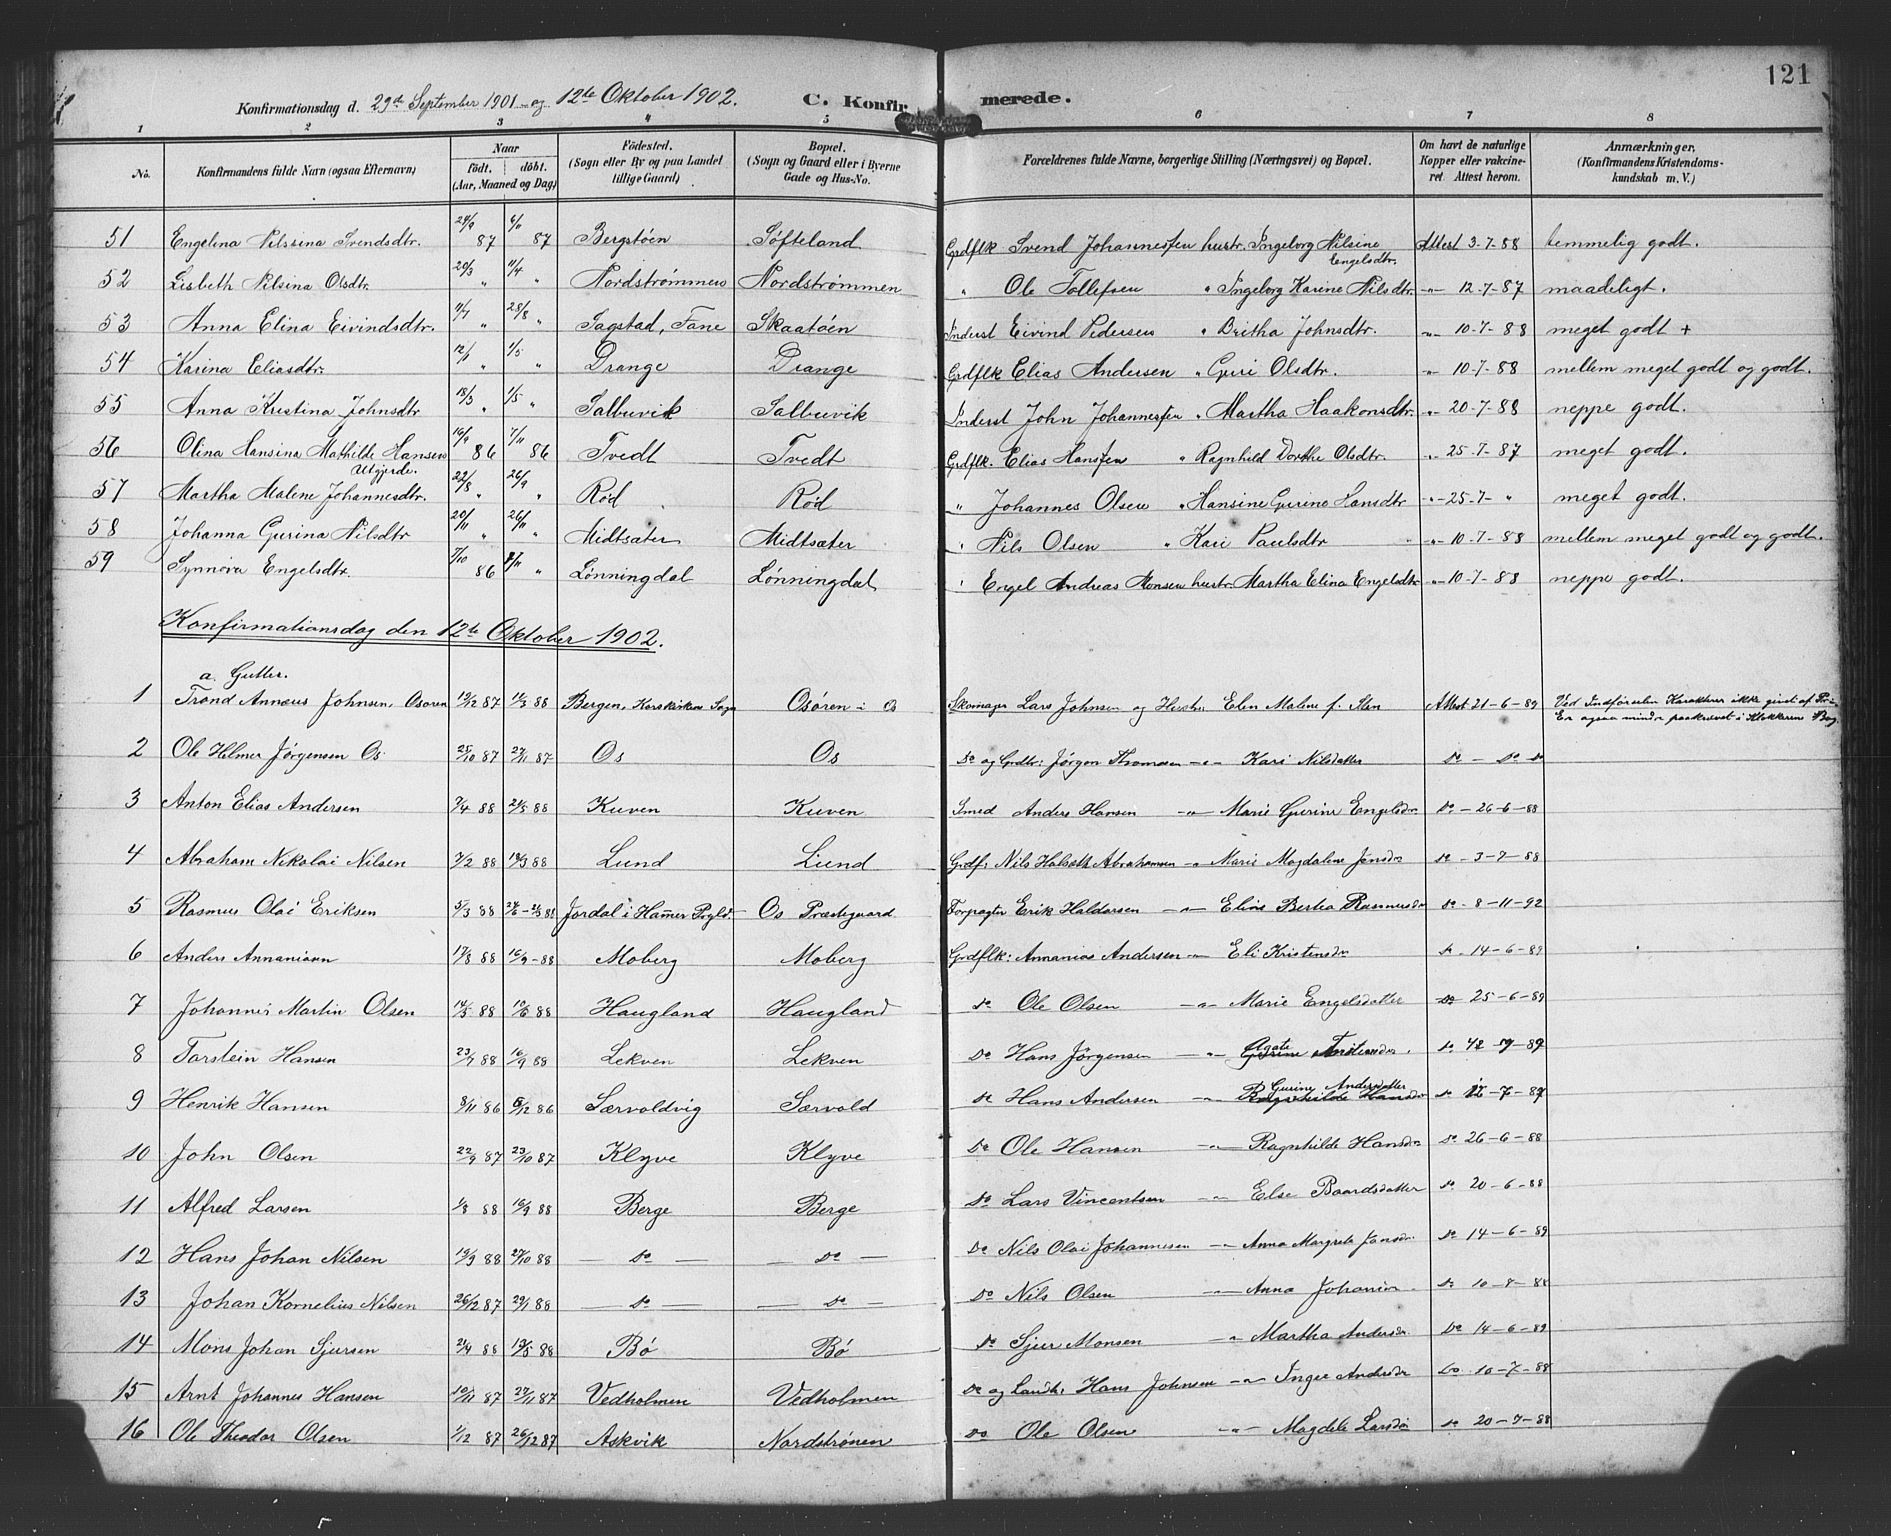 121
Konfirmationsdag d. 29de September 1901 og 12te Oktober 1902. C. Konfirmerede.
1 2 3 4 5 6 7 8
No. Konfirmandens fulde Navn (ogsaa Efternavn) Naar født. døbt. (Aar, Maaned og Dag) Fødested. (Sogn eller By og paa Landet tillige Gaard) Bopæl. (Sogn og Gaard eller i Byerne Gade og Hus-No. Forældrenes fulde Navne, borgerlige Stilling (Næringsvei) og Bopæl. Om havt de naturlige Kopper eller vakcineret. Attest herom. Anmærkninger, (Konfirmandens Kristendomskundskab m. V.)
51 Engelina Nilssina Svendsdtr. 24/9 87 6/11 87 Bergstøen Søfteland Grdflk Svend Johannessen hustr. Ingeborg Nilsine Engelsdtr. Attest 3-7-88 temmelig godt.
52 Lisbeth Nilsina Olsdtr. 20/3 " 11/4 " Nordstrømmen Nordstrømmen " Ole Tollefsen " Ingeborg Karine Nilsdtr. -"- 12-7-87 maadeligt.
53 Anna Elina Eivindsdtr. " 28/8 " Sagstad, Fane Skaatøen Inderst Eivind Pedersen " Britha Johnsdtr. -"- 10-7-88 meget godt +
54 Karina Eliasdtr. 12/1 " 1/5 " Drange Drange Grdflk Elias Andersen " Guri Olsdtr. -"- 10-7-88 mellem meget godt og godt.
55 Anna Kristina Johnsdtr 18/3 " 1/5 " Salbuvik Salbuvik Inderst John Johannessen " Martha Haakonsdtr. "- 20-7-88 neppe godt.
56 Olina Hansina Mathilde Hansen Utgjerde. 16/9 86 7/11 86 Tvedt Tvedt Grdflk. Elias Hansen " Ragnhild Dorthe Olsdtr. "- 25-7-87 meget godt.
57 Martha Malene Johannesdtr. 22/8 " 26/9 " Rød Rød " Johannes Olsen " Hansine Gurine Hansdtr "- 25-7- " meget godt.
58 Johanna Gurina Nilsdtr 20/11 " 26/11 " Midtsæter Midtsæter " Nils Olsen " Kari Paulsdtr "- 10-7-88 mellem meget godt og godt.
59 Synnøva Engelsdtr. 7/10 86 " Lønningdal Lønningdal " Engel Andreas Monsen hustr. Martha Elina Engelsdtr "- 10-7-88 neppe godt.
Konfirmationsdag den 12te Oktober 1902.
a. Gutter.
1 Trond Annæus Johnsen, Osøren 19/12 87 11/3 88 Bergen, Korskirkens Sogn Osøren i Os Skomager Lars Johnsen og Hustr. Elen Malene f. Sten Attest 21-6-89 Ved Indførselen Karakterer ikke givet af Er ogsaa mindre paakrævet i Klokkerens Bog.
2 Ole Helmer Jørgensen Os 25/10 87 27/11 87 Os Os Do og Grdbr: Jørgen Thomasen -"- Kari Nilsdatter Do - Do Do
3 Anton Elias Andersen 7/4 88 21/5 88 Kuven Kuven Smed Anders Hansen -"- Marie Gurine Engelsdr. Do - 26-6-88
4 Abraham Nikolai Nilsen 7/2 88 18/3 88 Lund Lund Grdf: Nils Halseth Abrahamsen -"- Marie Magdalene Jensdr Do - 3-7-88
5 Rasmus Olai Eriksen 5/3 88 Jordal i Hamer Prgld. Os Præstegaard Forpagter Erik Haldorsen -"- Eline Bertea Rasmusdr Do - 8-11-92
6 Anders Annaniasen 17/8 88 16/9-88 Moberg Moberg Grdflk: Annanias Andersen -"- Eli Kristensdr Do - 14-6-89
7 Johannes Martin Olsen 14/5 88 10/6 88 Haugland Haugland Do Ole Olsen -"- Marie Engelsdatter Do 25-6-89
8 Torstein Hansen 23/7 88 16/9 88 Lekven Lekven Do Hans Jørgensen -"- Agate Do
9 Henrik Hansen 8/11 86 5/12 86 Særvoldvig Særvold Do Hans Andersen -"- Gurine Andersdatter Do 12-7-87
10 John Olsen 22/9 87 23/10 87 Klyve Klyve Do Ole Hansen -"- Ragnhilde Hansdr Do 26-6-88
11 Alfred Larsen 1/8 88 16/9 88 Berge Berge Do Lars Vincentsen -"- Else Baardsdatter Do 20-6-88
12 Hans Johan Nilsen 19/9 88 27/10 88 - Do - - Do - Do Nils Olai Johannesen -"- Anna Margrete Jansdr Do 14-6-89
13 Johan Kornelius Nilsen 26/12 87 29/1 88 - Do - - Do - Do Nils Olsen -"- Anna Do 10-8-88
14 Mons Johan Sjursen 21/4 88 13/5 88 Bø Bø Do Sjur Monsen -"- Martha Andersdr Do 14-6-89
15 Arnt Johannes Hansen 10/11 87 27/11 87 Vedholmen Vedholmen Do og Landh: Hans Johnsen -"- Inger Andersdr Do 10-7-88
16 Ole Theodor Olsen 1/12 87 26/12 87 Askvik Nordstrønen Do Ole Olsen -"- Magdele Larsdr Do 20-7-88